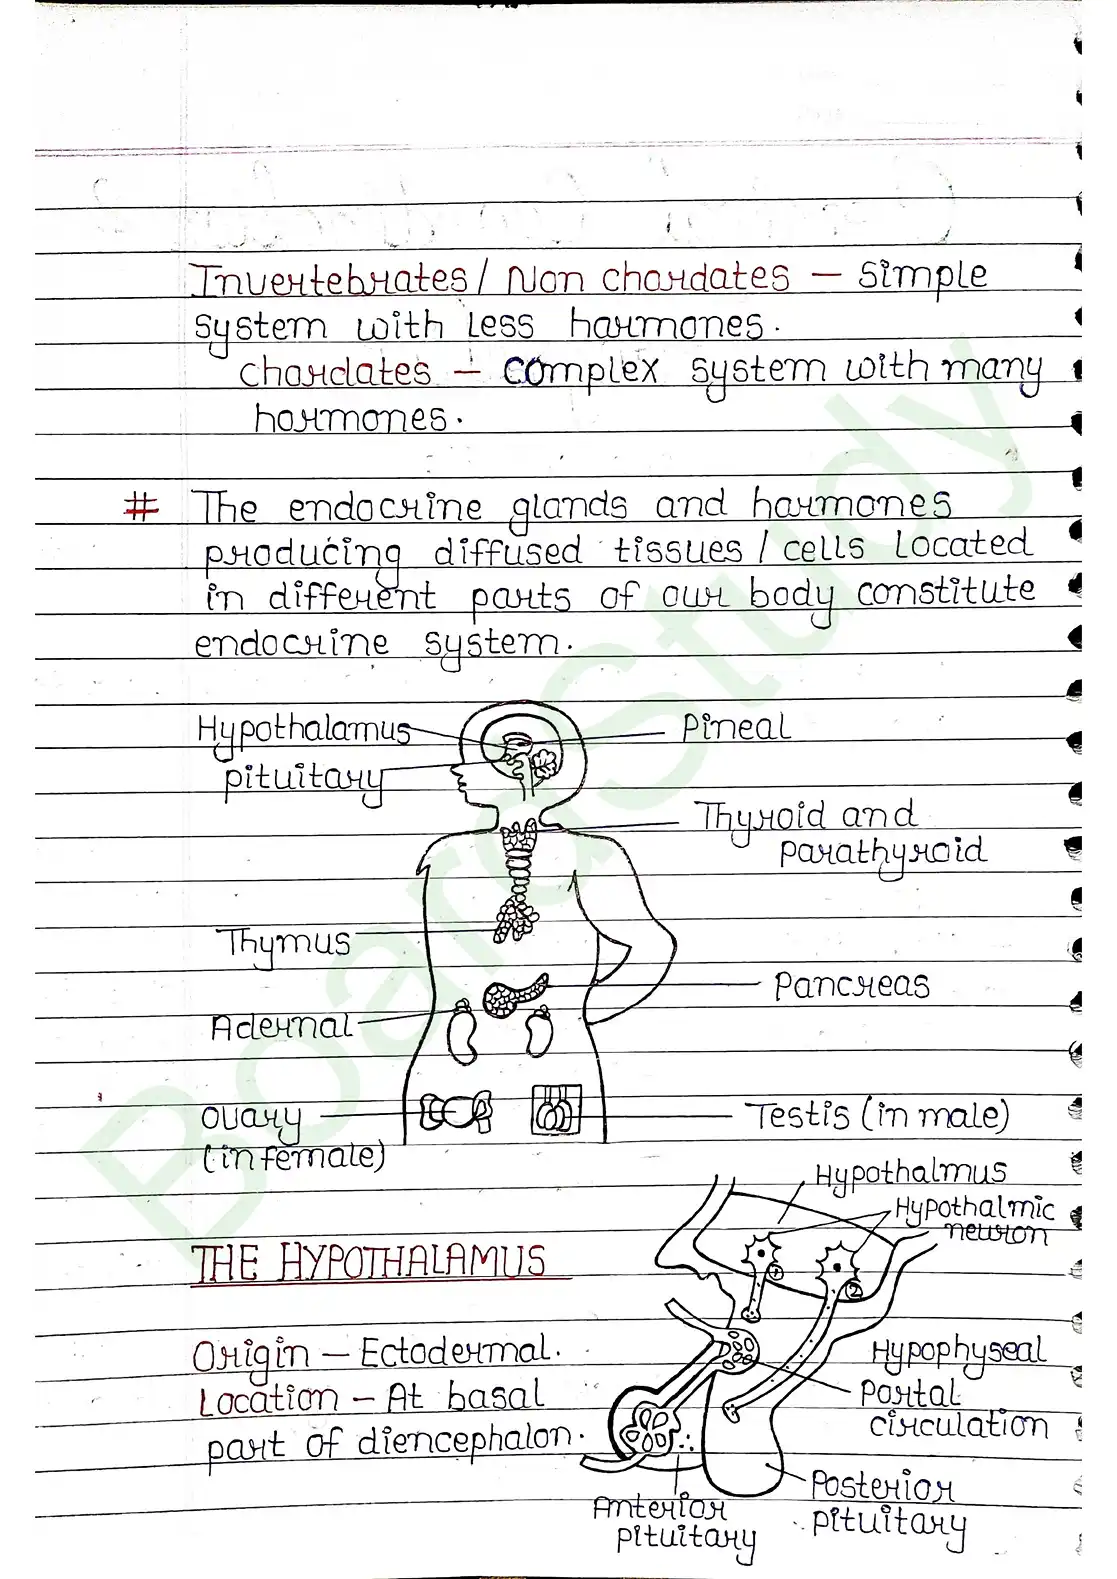 Invertebrates / Non chordates – simple
system with less hormones.
chordates – complex system with many
hormones.
# The endocrine glands and hormones
producing diffused tissues / cells located
in different parts of our body constitute
endocrine system.
Hypothalamus
Pineal
pituitary
Thyroid and
parathyroid
Thymus
Pancreas
Adernal
ovary
(in female)
Testis (in male)
Hypothalmus
Hypothalmic
neuron
THE HYPOTHALAMUS
1
2
Origin – Ectodermal.
Location – At basal
part of diencephalon.
Hypophyseal
Portal
circulation
Posterior
pituitary
Anterior
pituitary
BoardStudy